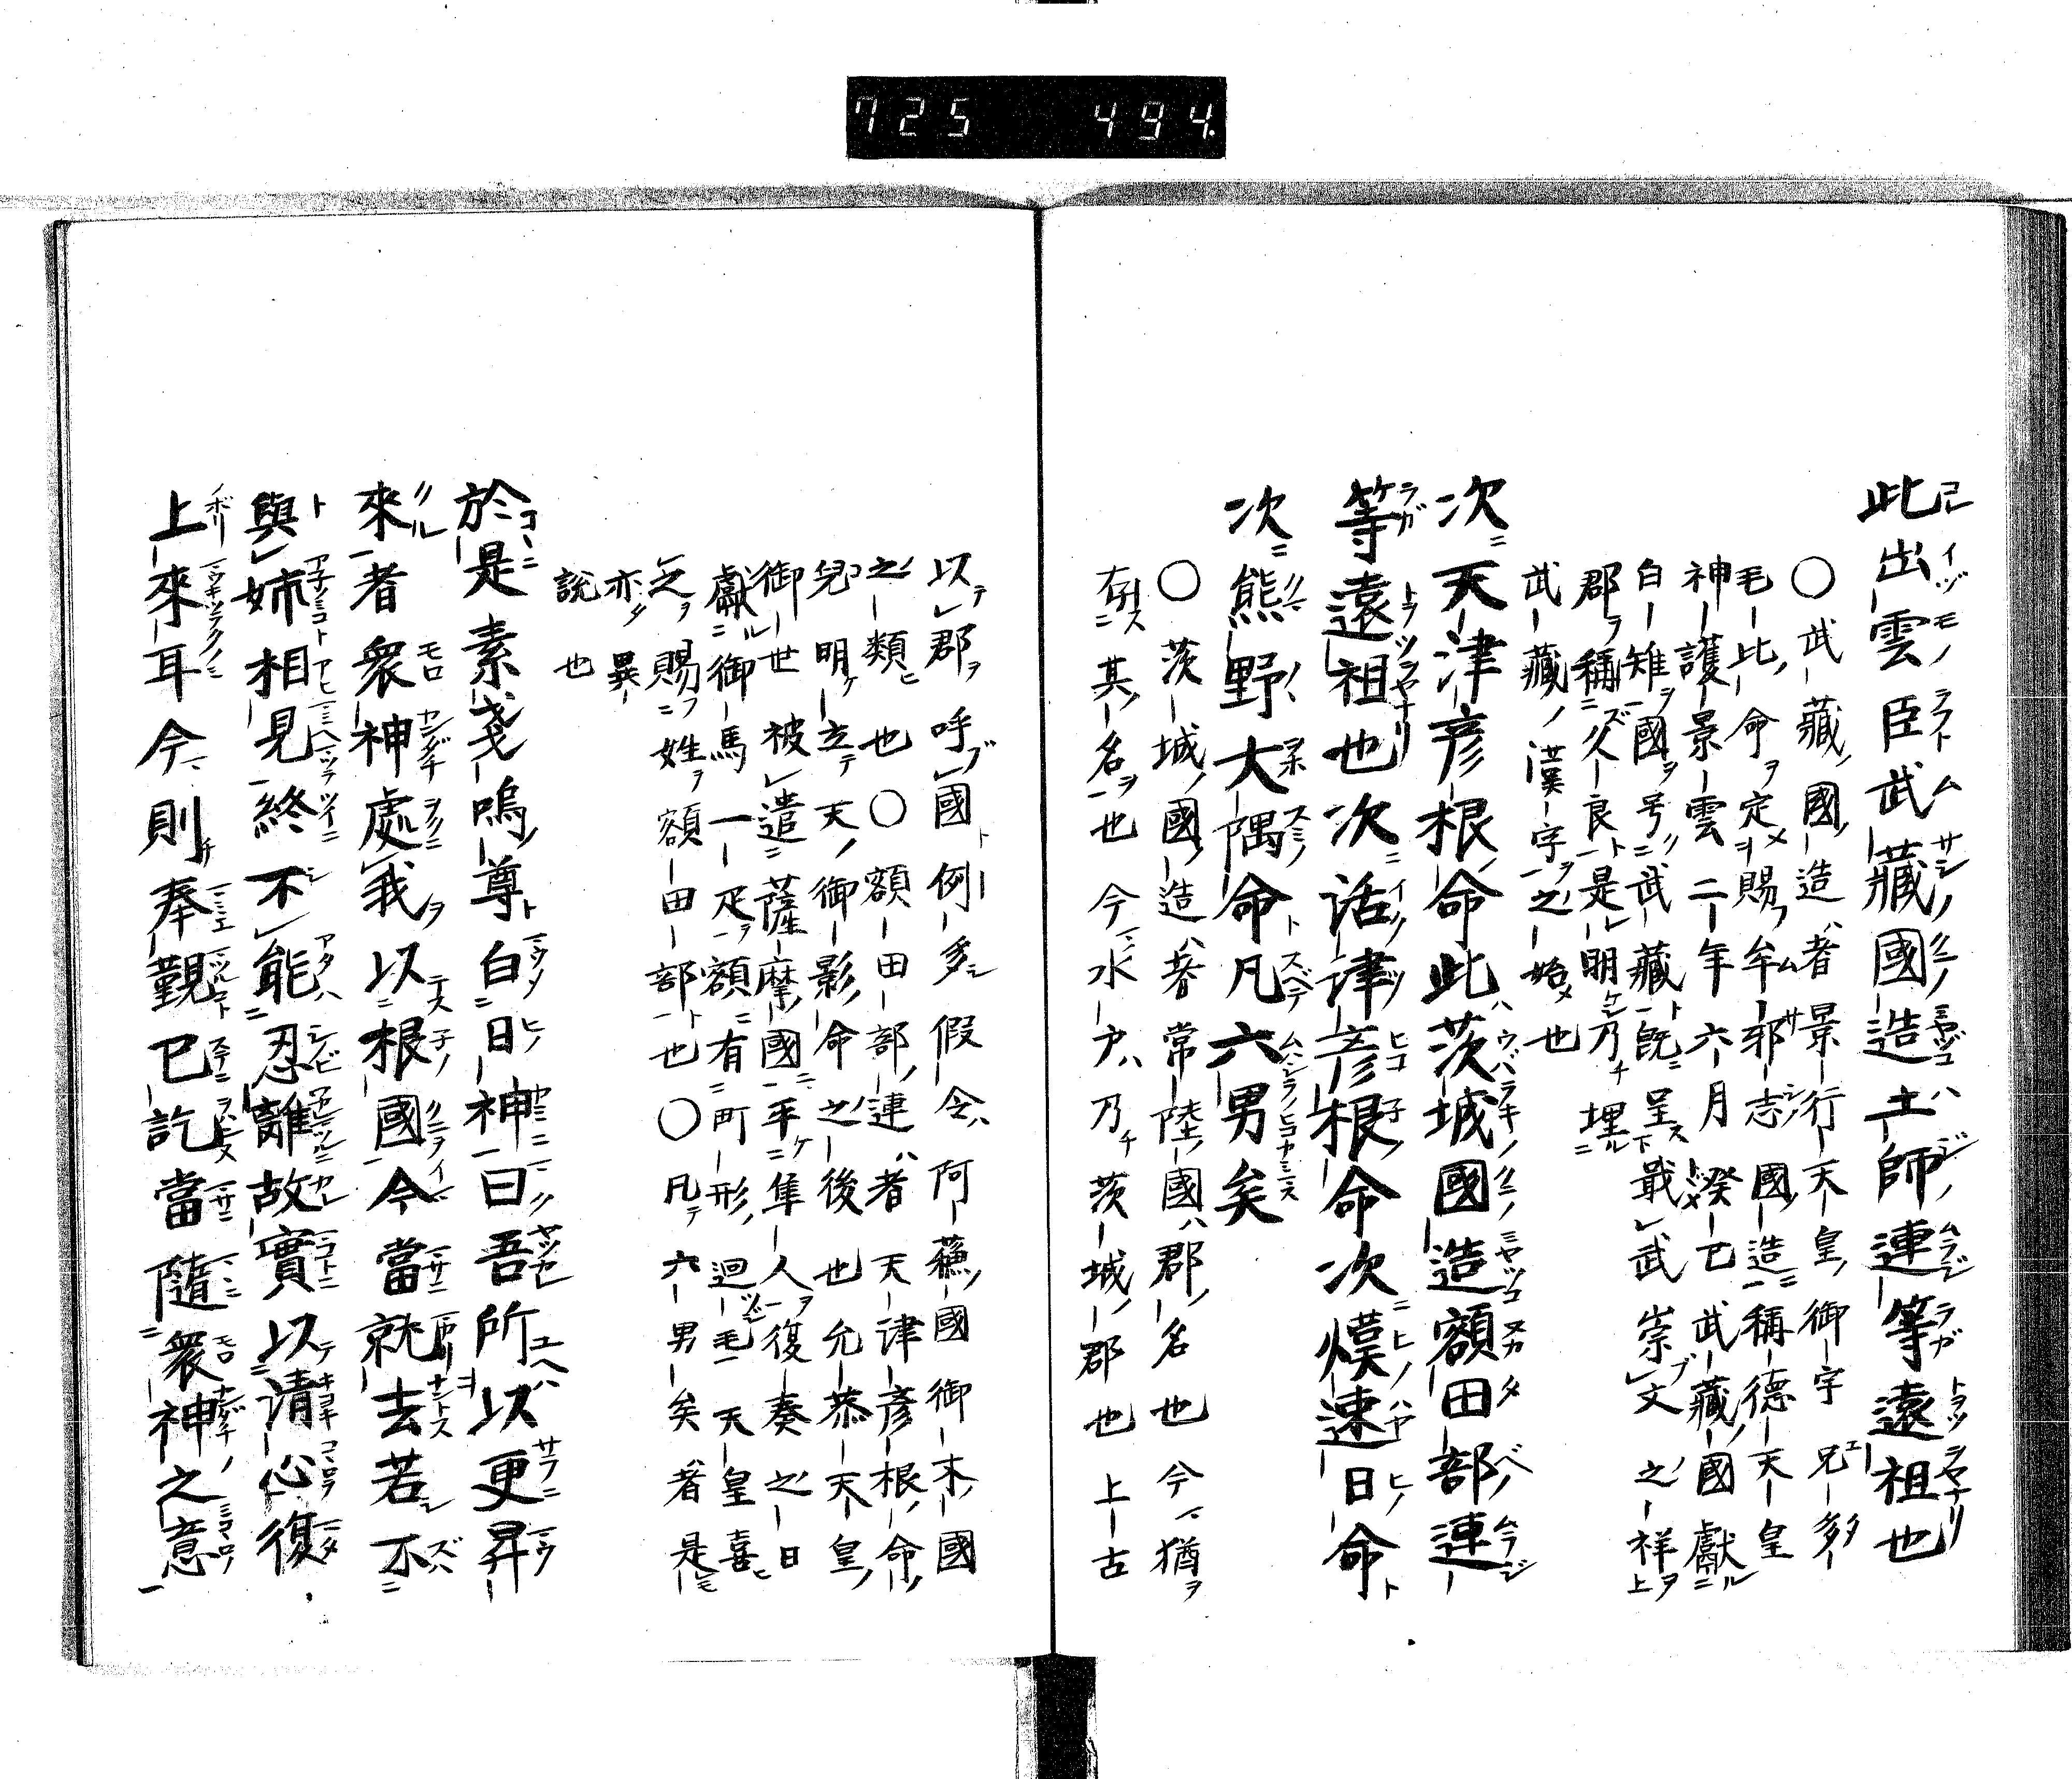 725 494
此出雲臣武藏國造土師連等遠祖也
○武藏國造者景行天皇御宇兄多
毛比命定賜牟邪志國造稱德天皇
神護景雲二年六月癸巳武藏國獻
白雉國号武藏既呈戢武崇文之祥
郡稱久良是明乃埋
武藏漢字之始也
次天津彦根命此茨城國造額田部連
等遠祖也次活津彦根命次熯速日命
次熊野大隅命凡六男矣
○茨城國造者常陸國郡名也今猶
有其名也今水戸乃茨城郡也上古
以郡呼國例多假令阿蘓國御木國
之類也○額田部連者天津彦根命
兒明立天御影命之後也允恭天皇
御世被遣薩摩國平隼人復奏之日
獻御馬一疋額有町形迴毛天皇喜
之賜姓額田部也○凡六男矣者是
亦異
說也
於是素戔嗚尊白日神曰吾所以更昇
來者衆神處我以根國今當就去若不
與姉相見終不能忍離故實以清心復
上來耳今則奉覲已訖當隨衆神之意